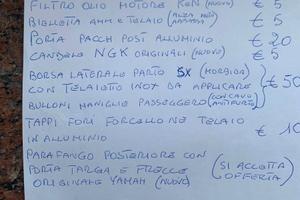 FILTRO OLIO MOTORE KEN (NUOVO) € 5
BIGLIETTA AMM E TELAIO € 5
PORTA PACCHI POST ALLUMINIO € 20
CANDELE NGK ORIGINALI (NUOVO) € 5
BORSA LATERALE PARTO SX (MORBIDA)
CON TELAIETTO INOX DA APPLICARE € 50
BULLONI MANIGLIE PASSEGGERO (CONCAVO ANTIFURTO)
TAPPI FORI FORCELLONE TELAIO
IN ALLUMINIO € 10
PARAFANGO POSTERIORE CON
PORTA TARGA E FRECCE (SI ACCETTA
ORIGINALE YAMAH (NUOVO) OFFERTA)